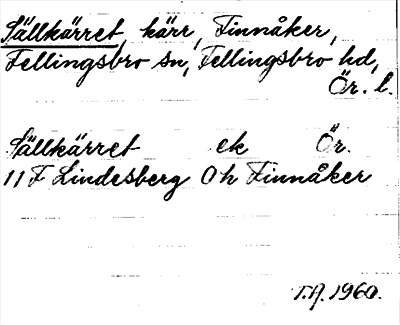 Sällkärret, kärr, Finnåker,
Fellingsbro sn, Fellingsbro hd,
Ör. l.
Sällkärret ek Ör.
11 F Lindesberg 0 h Finnåker
T.A. 1960.